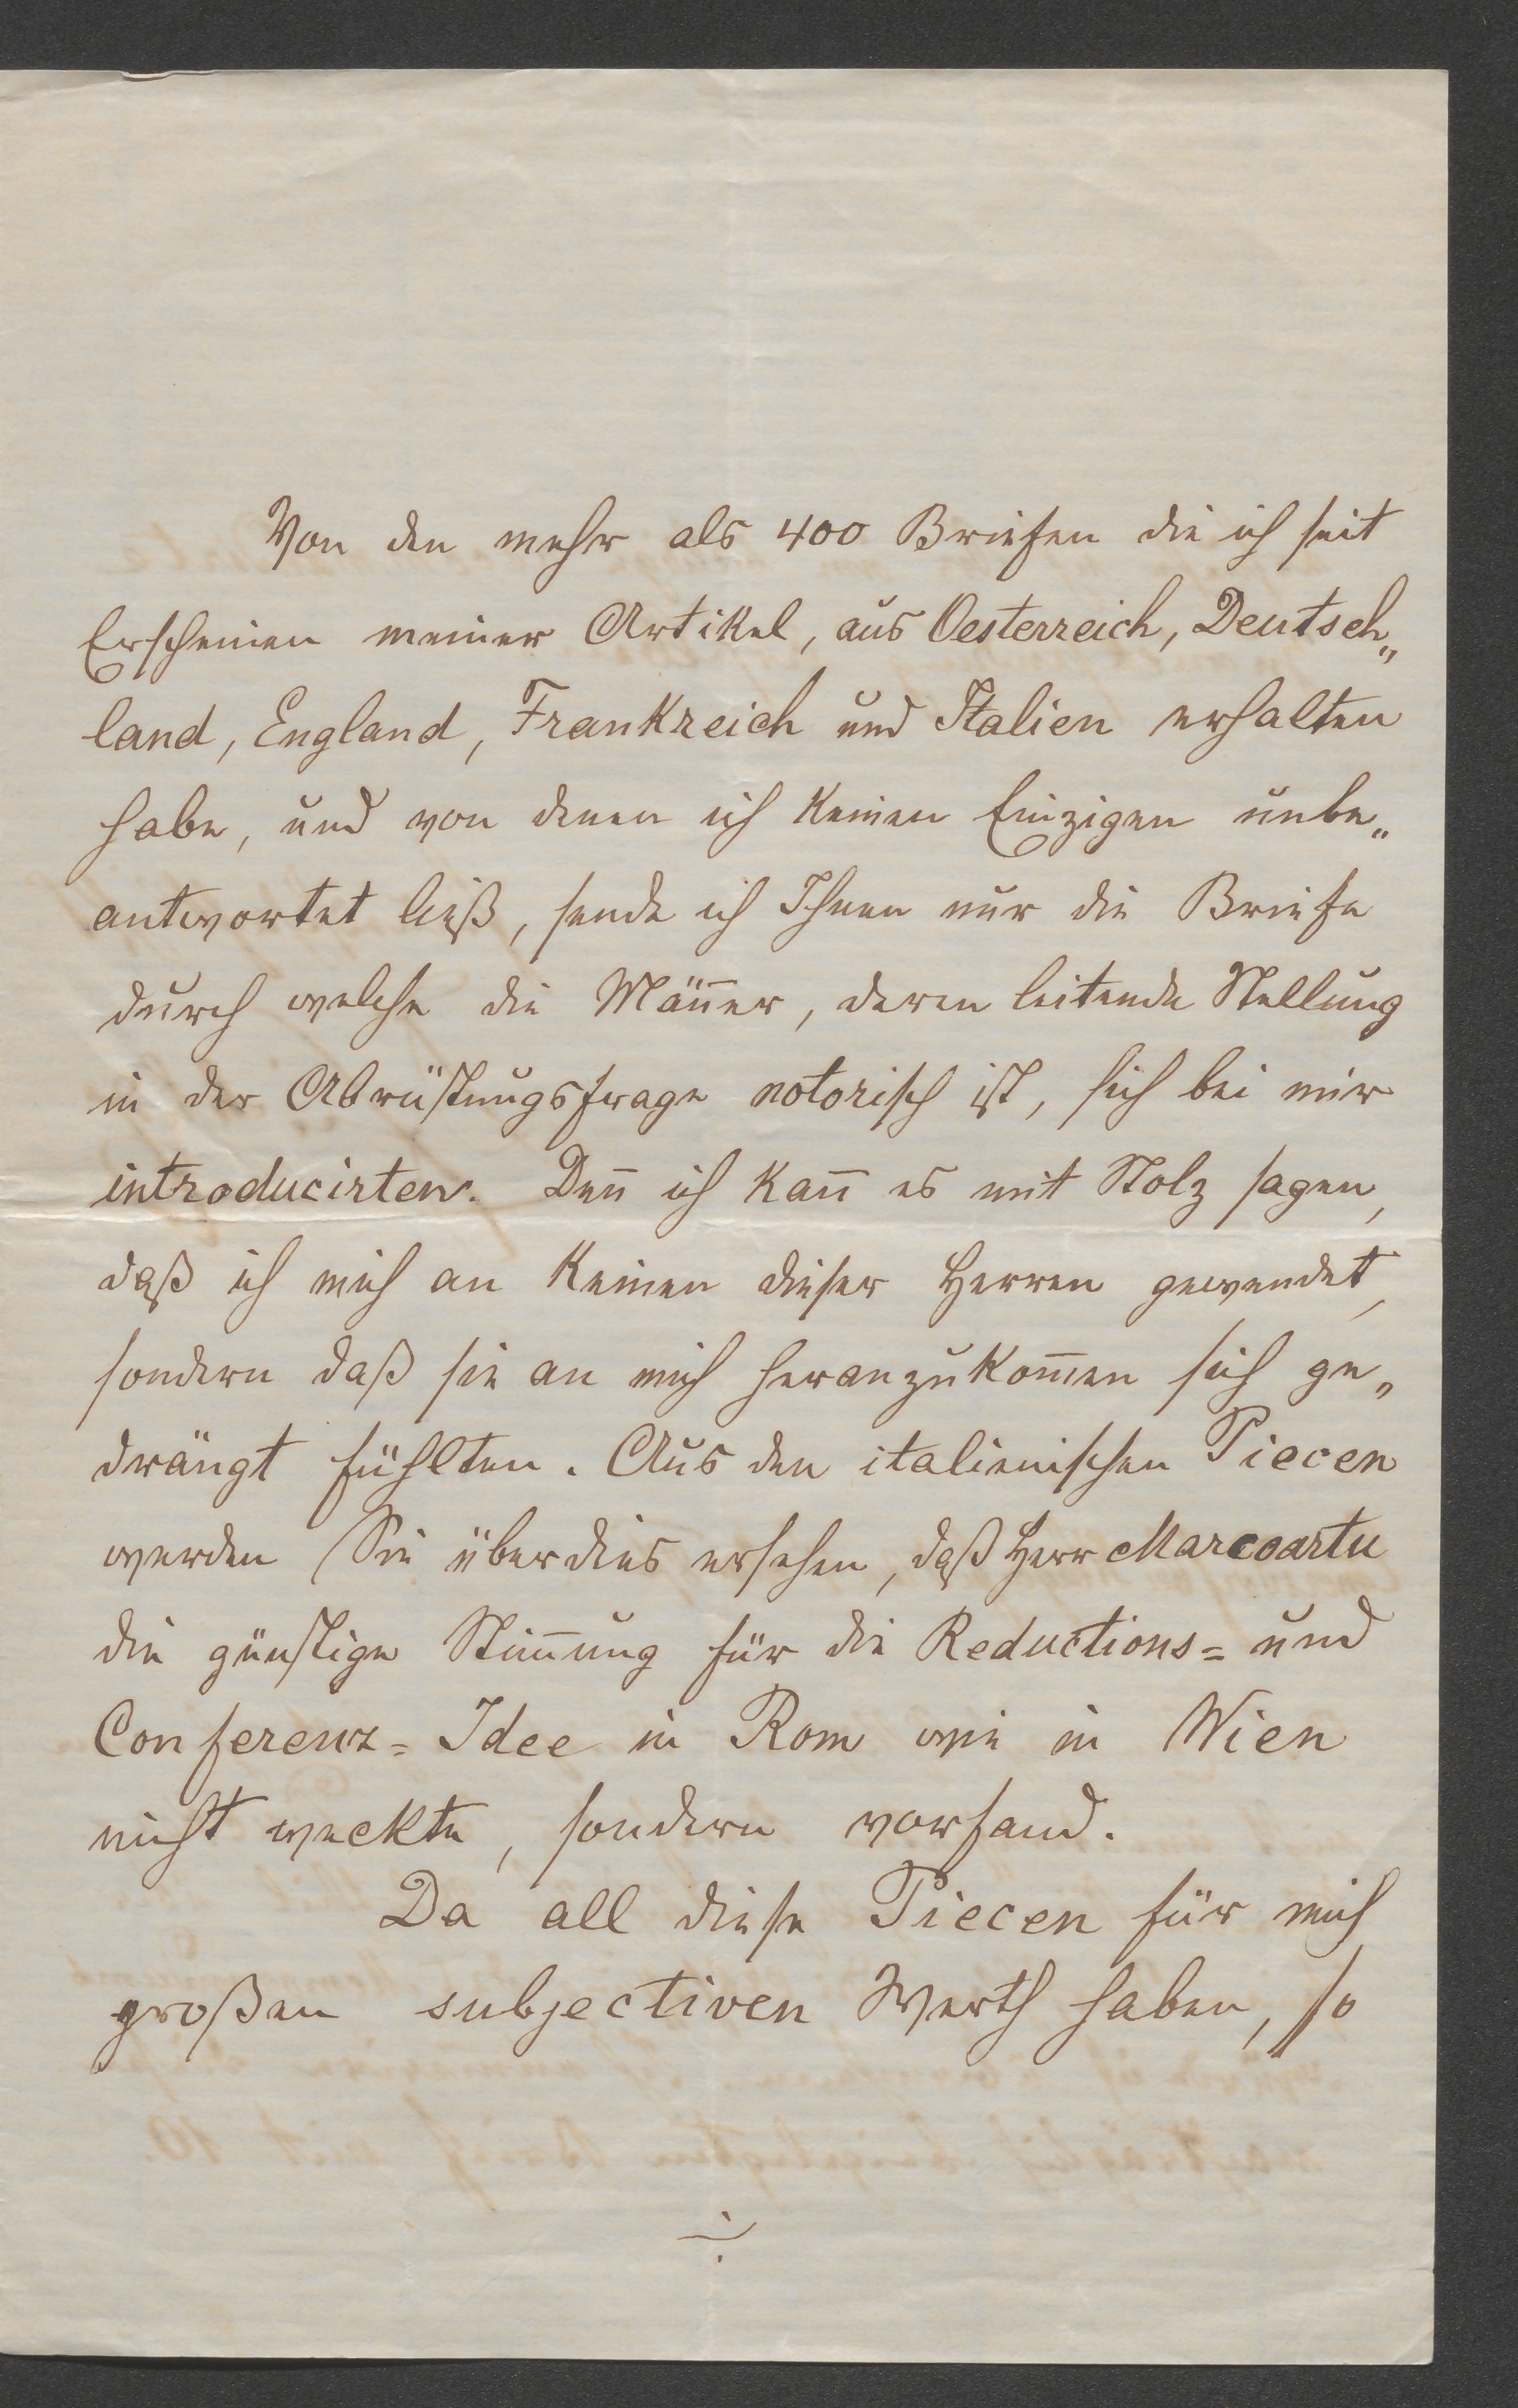 Von den mehr als 400 Briefen die ich seit
Erscheinen meiner Artikel, aus Oesterreich, Deutsch„
land, England, Frankreich und Italien erhalten
habe, und von denen ich keinen Einzigen unbe„
antwortet ließ, sende ich Ihnen nur die Briefe
durch welche die Mäñer, deren leitende Stellung
in der Abrüstungsfrage notorisch ist, sich bei mir
introducirten. Deñ ich kañ es mit Stolz sagen,
daß ich mich an keinen dieser Herren gewendet,
sondern daß sie an mich heranzukom̅en sich ge„
drängt fühlten. Aus den italienischen Piecen
werden Sie überdies ersehen, daß Herr Marcoartu
die günstige Stim̅ung für die Reductions= und
Conferenz=Idee in Rom wie in Wien
nicht weckte, sondern vorfand.
Da all diese Piecen für mich
großen subjectiven Werth haben, so
÷